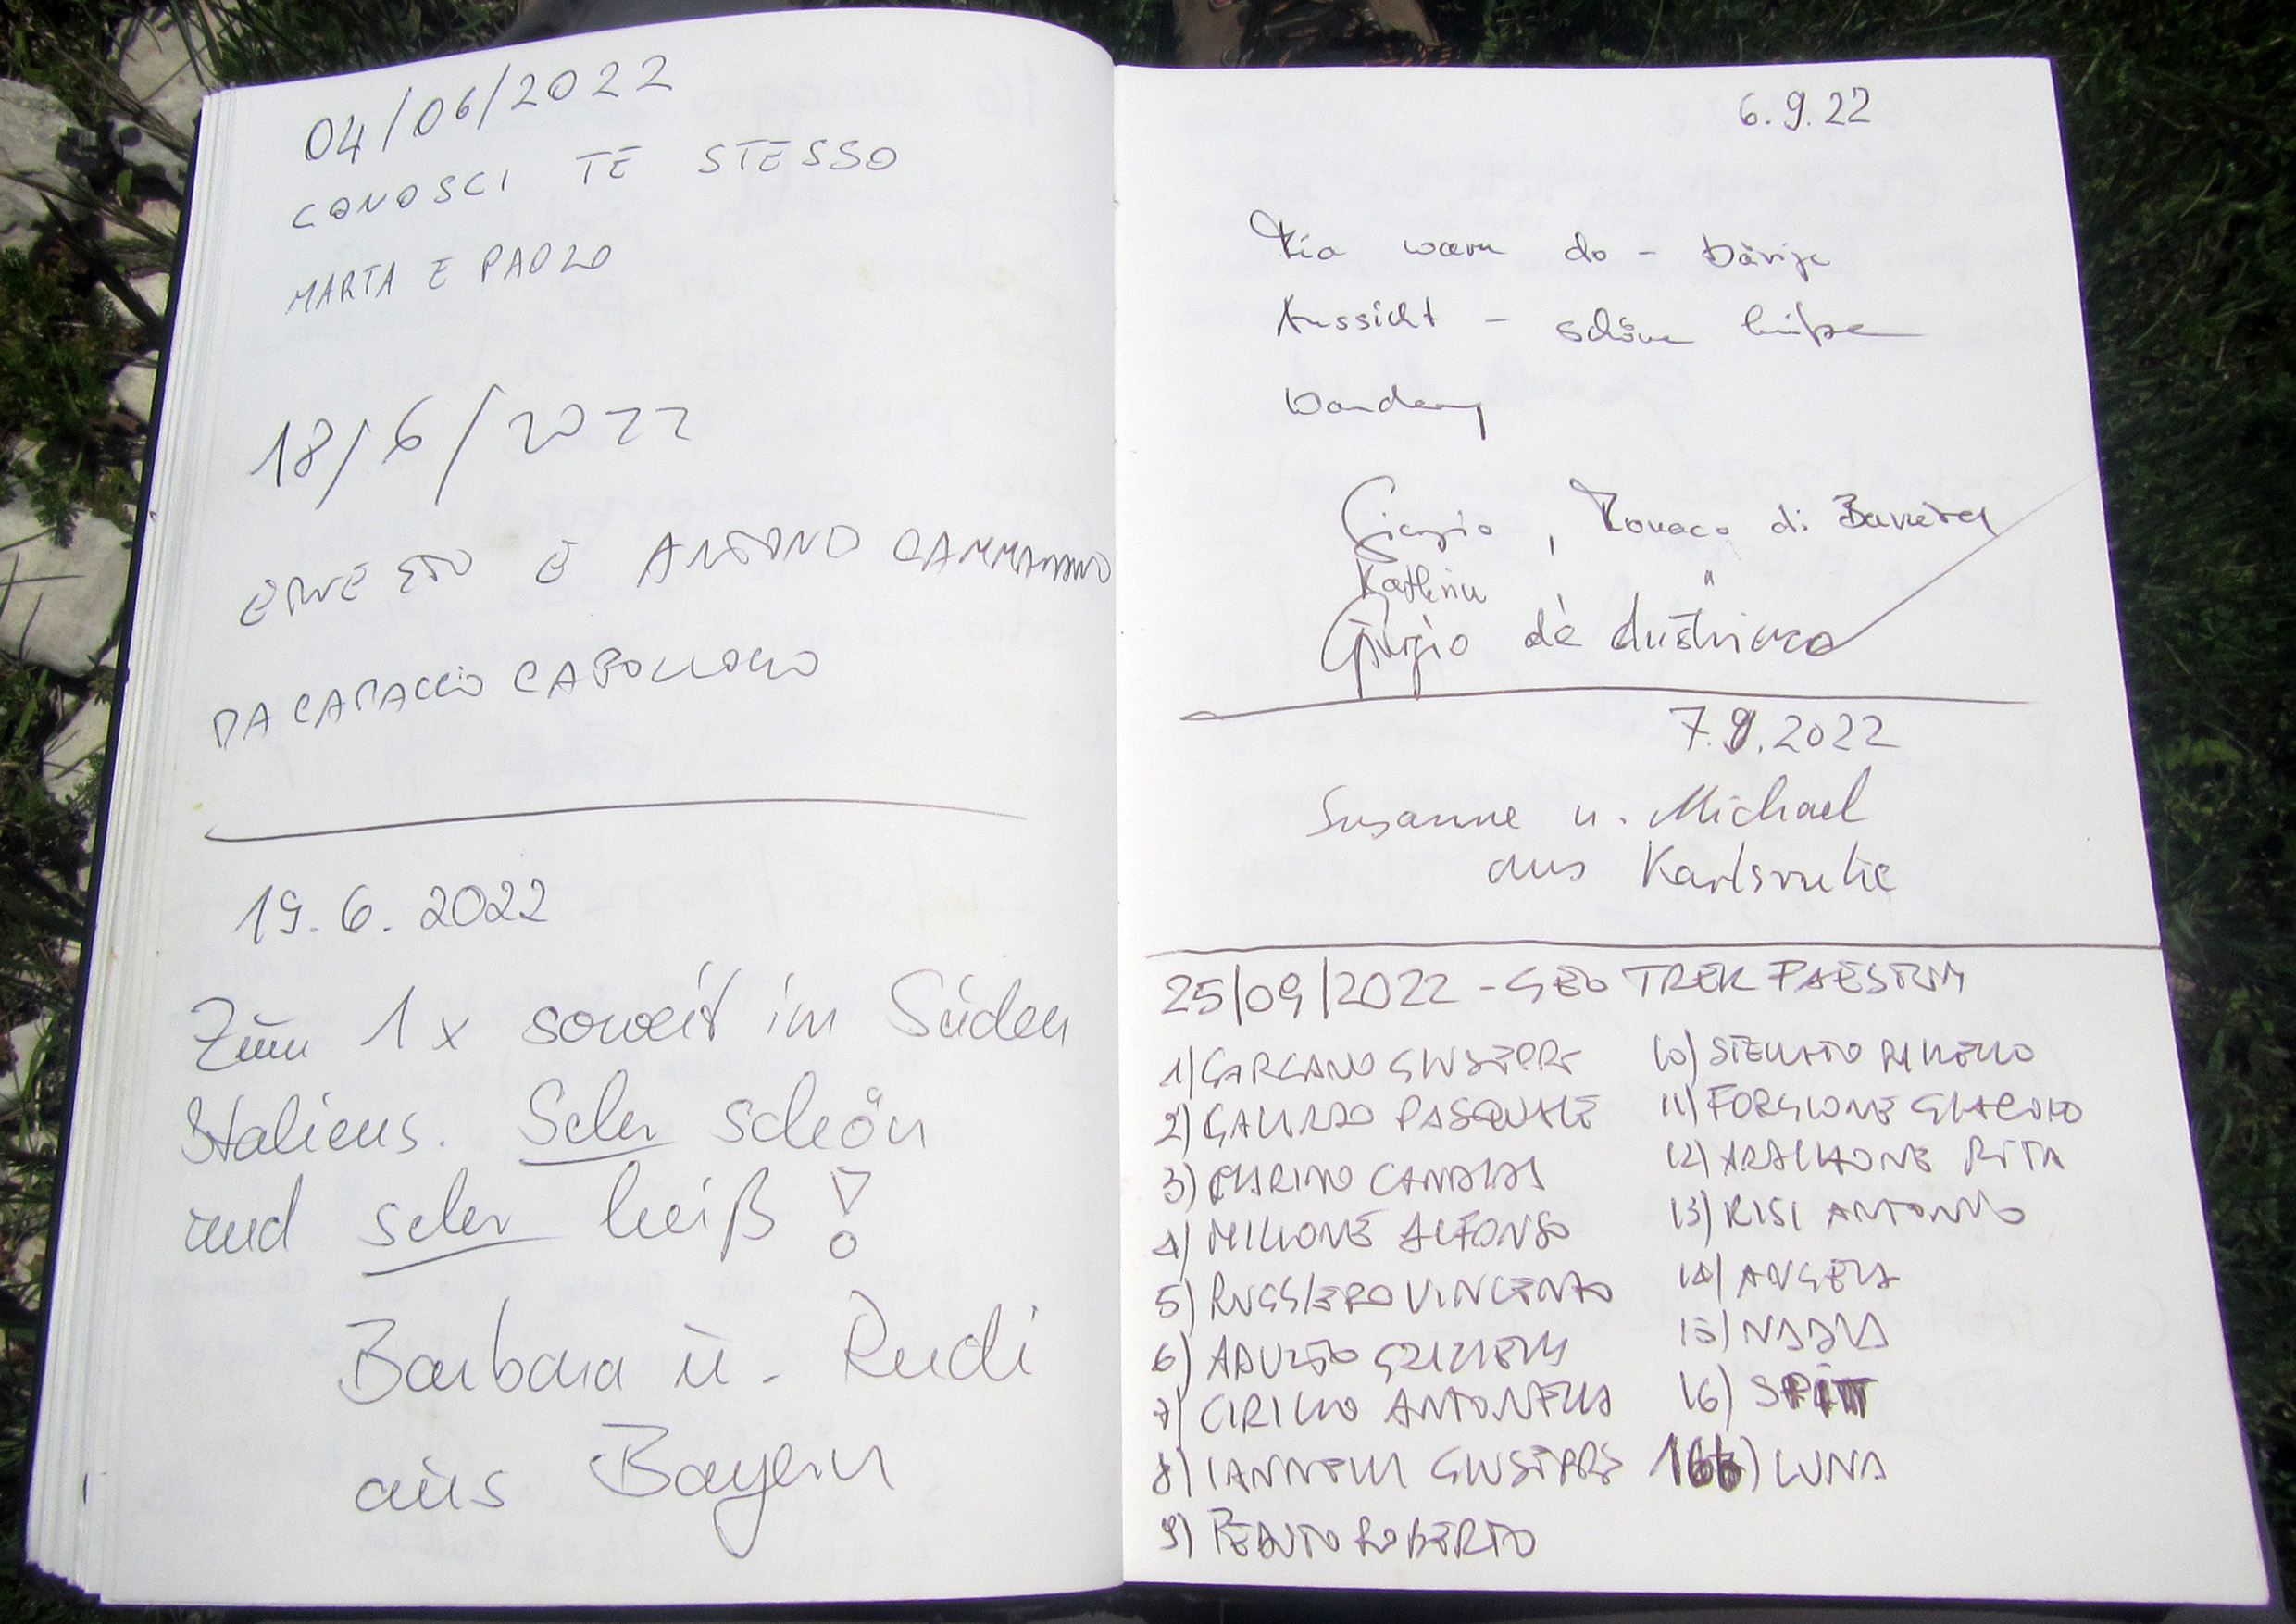 04/06/2022
CONOSCI TE STESSO
MARTA E PAOLO
18/6/2022
ERNESTO E ANTONIO CAMMARANO
DA CAPACCIO CAPOLUOGO
19.6.2022
Zum 1x soweit im Süden
Italiens. Sehr schön
und sehr heiß!
Barbara u. Rudi
aus Bayern
6.9.22
Mia warn do -
Aussicht - schöne heiße
Wanderung
Giorgio, Monaco di Baviera
Kathrin "
Giorgio de Austriaco
7.9.2022
Susanne u. Michael
aus Karlsruhe
25/09/2022 - GEO TREK PAESTUM
1) GARGANO GIUSEPPE
2) GALARDO PASQUALE
3)
4) MILIONE ALFONSO
5) RUGGIERO VINCENZO
6)
7) CIRILLO ANTONELLA
8) IANNELLI GIUSEPPE
9) ROBERTO
10)
11) FORGIONE GERARDO
12) RITA
13) RISI ANTONIO
14) ANGELA
15) NADIA
16) SPITT
16b) LUNA